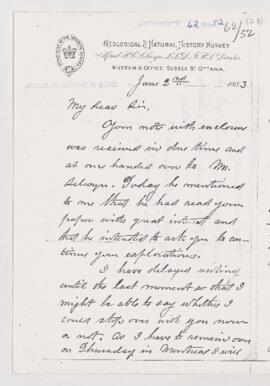 62/52
GEOLOGICAL & NATURAL HISTORY SURVEY
Alfred R.C. Selwyn L.L.D. F.R.S. Director
MUSEUM & OFFICE SUSSEX ST OTTAWA.
June 2nd 1883
My dear Sir,
Your note with enclosure
was received in due time and
at once handed over to Mr.
Selwyn. Today he mentioned
to me that he had read your
paper with great interest and
that he intended to ask you to con-
tinue your explorations.
I have delayed writing
until the last moment so that I
might be able to say whether I
could stop over with you now
or not. As I have to remain over
on Thursday in Montreal I will